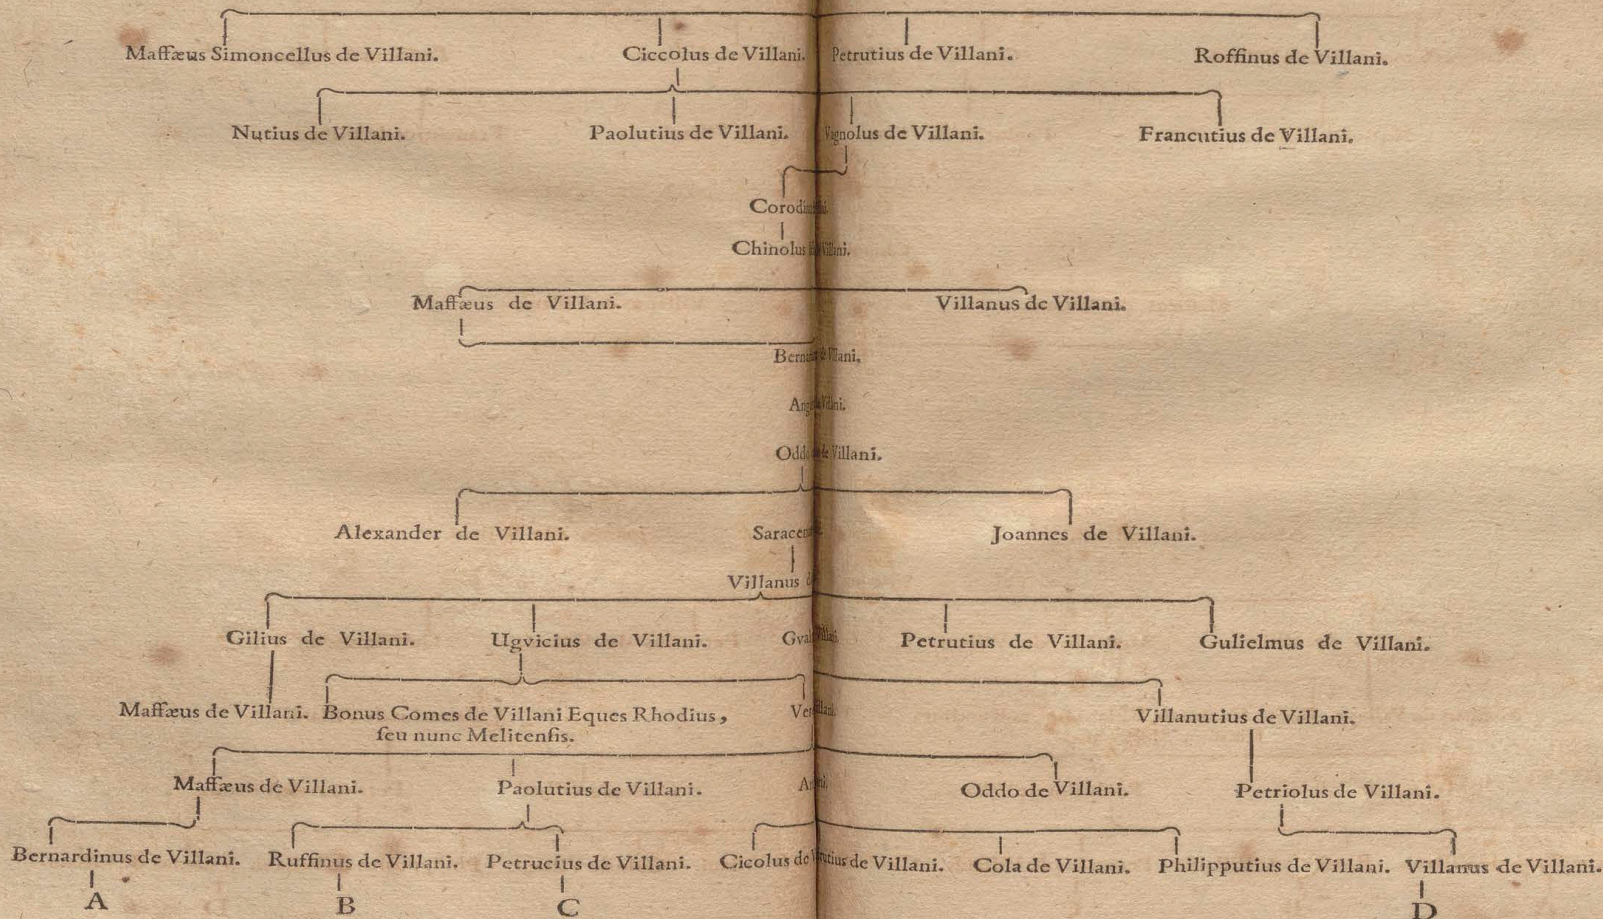 Maffæus Simoncellus de Villani. Ciccolus de Villani. Petrutius de Villani. Roffinus de Villani.
Nutius de Villani. Paolutius de Villani. Vagnolus de Villani. Francutius de Villani.
Chinolus Villani.
Maffæus de Villani. Villanus de Villani.
de Villani.
Villani.
Oddo de Villani.
Alexander de Villani. Joannes de Villani.
Villanus
Gilius de Villani. Ugvicius de Villani. Petrutius de Villani. Gulielmus de Villani.
Maffæus de Villani. Bonus Comes de Villani Eques Rhodius, Villanutius de Villani.
seu nunc Melitensis.
Maffæus de Villani. Paolutius de Villani. Oddo de Villani. Petriolus de Villani.
Bernardinus de Villani. Ruffinus de Villani. Petrucius de Villani. Cicolus de de Villani. Cola de Villani. Philipputius de Villani. Villanus de Villani.
A B C D